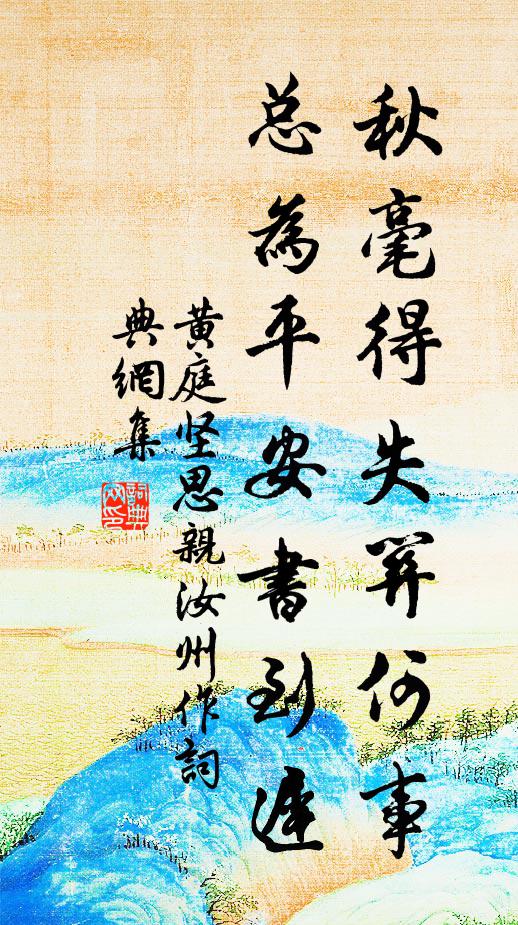 秋毫得失關何事
总為平安書到遲
黄庭坚思親汝州作詞
典網集
詞典网印